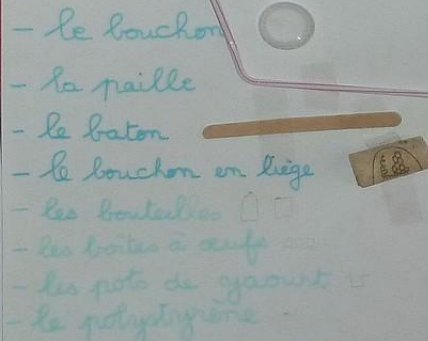 - le bouchon
- la paille
- le baton
- le bouchon en liège
- les bouteilles
- les boîtes à œufs
- les pots de yaourt
- le polystyrène